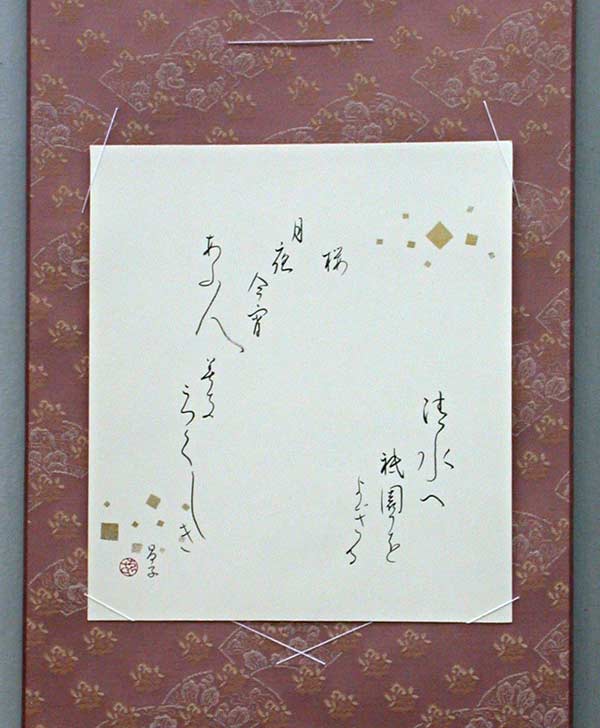 清水へ
祇園を
よぎる
桜
月夜
今宵
あふ人
みな
うつくしき